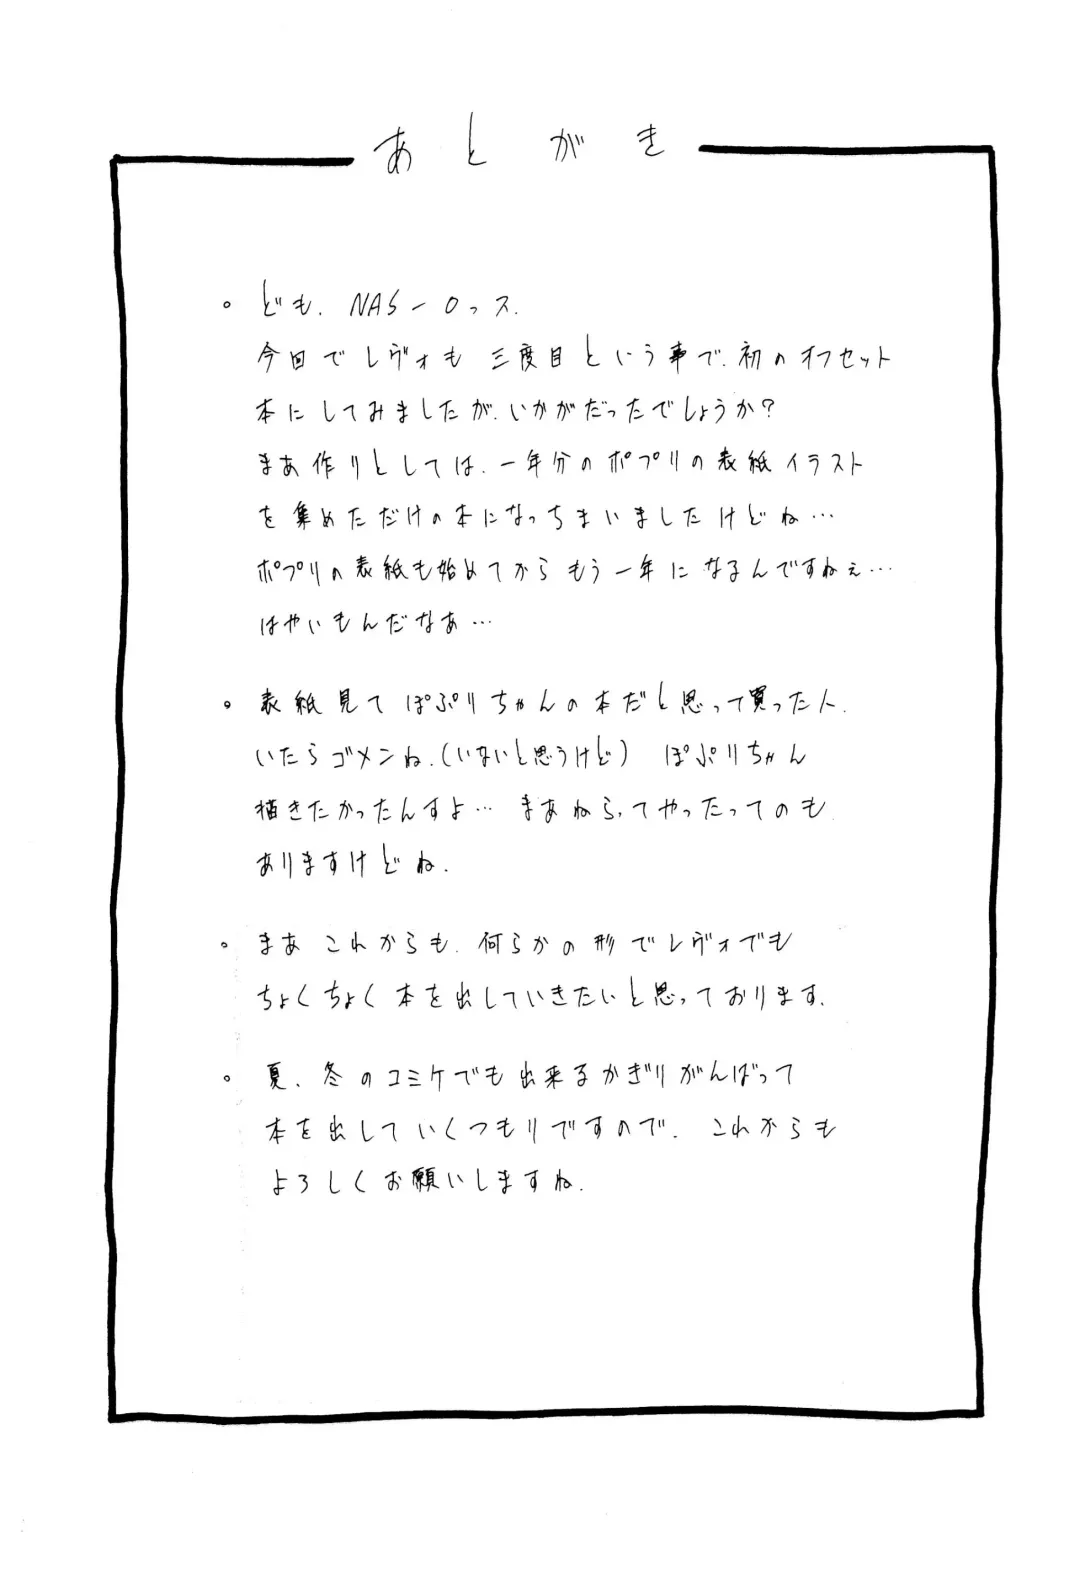 あとがき
。ども. NAS-Oっス.
今回でレヴォも三度目という事で.初のオフセット
本にしてみましたが.いかがだったでしょうか?
まあ作りとしては.一年分のポプリの表紙イラスト
を集めただけの本になっちまいましたけどね…
ポプリの表紙も始めてからもう一年になるんですねぇ…
はやいもんだなあ…
。表紙見てぽぷりちゃんの本だと思って買った人.
いたらゴメンね.(いないと思うけど) ぽぷりちゃん
描きたかったんすよ… まあねらってやったってのも
ありますけどね.
。まあ これからも.何らかの形でレヴォでも
ちょくちょく本を出していきたいと思っております.
。夏、冬のコミケでも出来るかぎりがんばって
本を出していくつもりですので. これからも
よろしくお願いしますね.